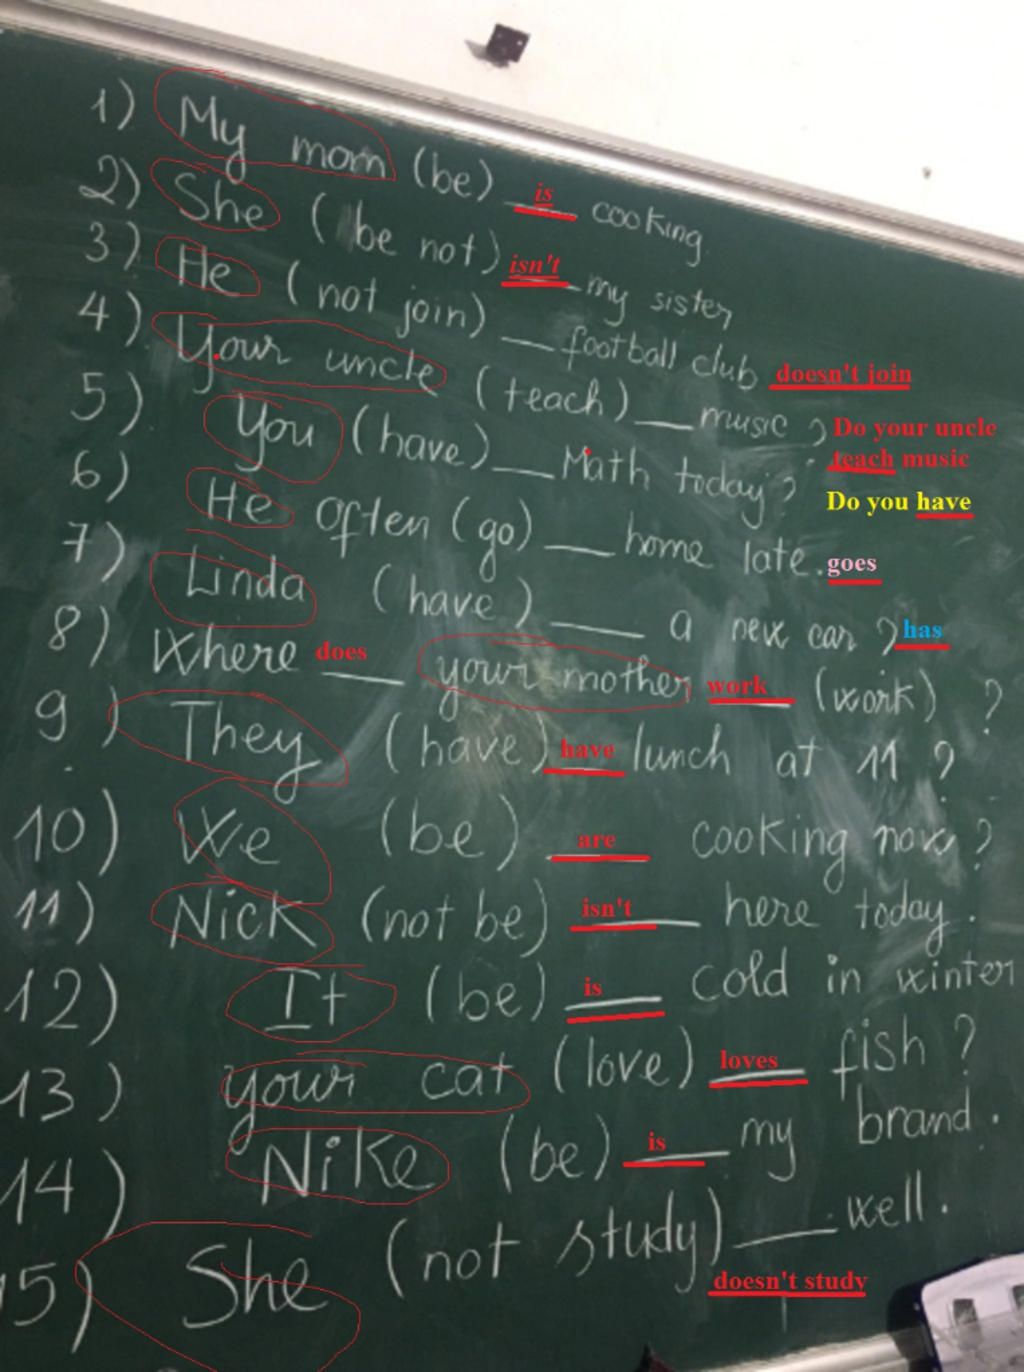 1) My mom (be) is cooking
2) She (be not) isn't my sister
3) He (not join) __ football club doesn't join
4) Your uncle (teach) __ music ? Do your uncle
teach music
5) You (have) __ Math today ? Do you have
6) He often (go) __ home late. goes
7) Linda (have) __ a new car ? has
8) Where does your mother work (work) ?
9) They (have) have lunch at 11 ?
10) We (be) are cooking now ?
11) Nick (not be) isn't here today.
12) It (be) is cold in winter
13) your cat (love) loves fish ?
14) Nike (be) is my brand.
15) She (not study) __ well.
doesn't study